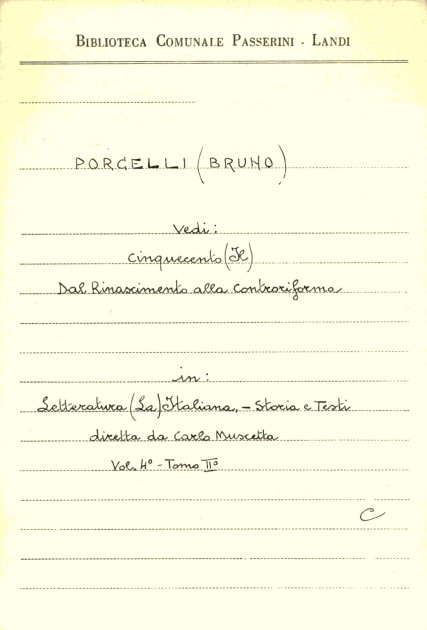 BIBLIOTECA COMUNALE PASSERINI - LANDI
PORCELLI (BRUNO)
Vedi:
Cinquecento (Il)
Dal Rinascimento alla Controriforma
in:
Letteratura (La) Italiana, - Storia e Testi
diretta da Carlo Muscetta
Vol. 4° - Tomo II°
C